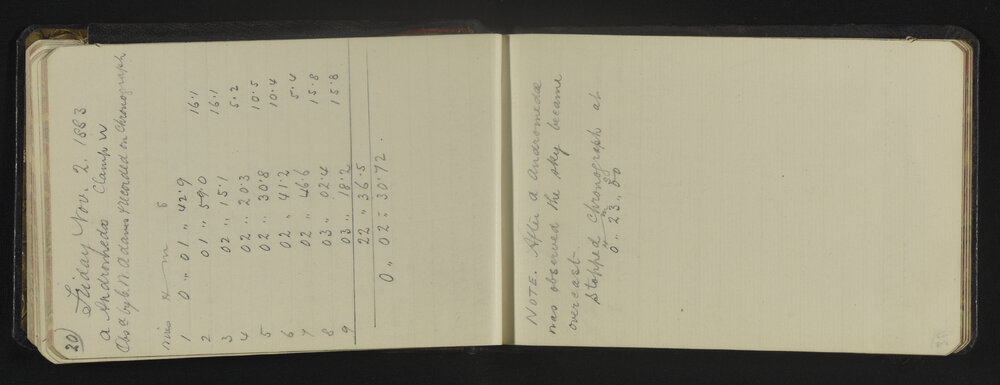 20
Friday Nov. 2. 1883
a Andromedae Clamp W
Obsd by C. N. Adams & recorded on Chronograph
wires h m s
1 0 " 01 " 42.9 16.1
2 01 " 59.0 16.1
3 02 " 15.1 5.2
4 02 " 20.3 10.5
5 02 " 30.8 10.4
6 02 " 41.2 5.4
7 02 " 46.6 15.8
8 03 " 02.4 15.8
9 03 " 18.2
22 " 36.5
0 " 02 " 30.72.
NOTE. After a Andromedae
was observed the sky became
overcast.
Stopped Chronograph at
h m s
0 " 23 " 00